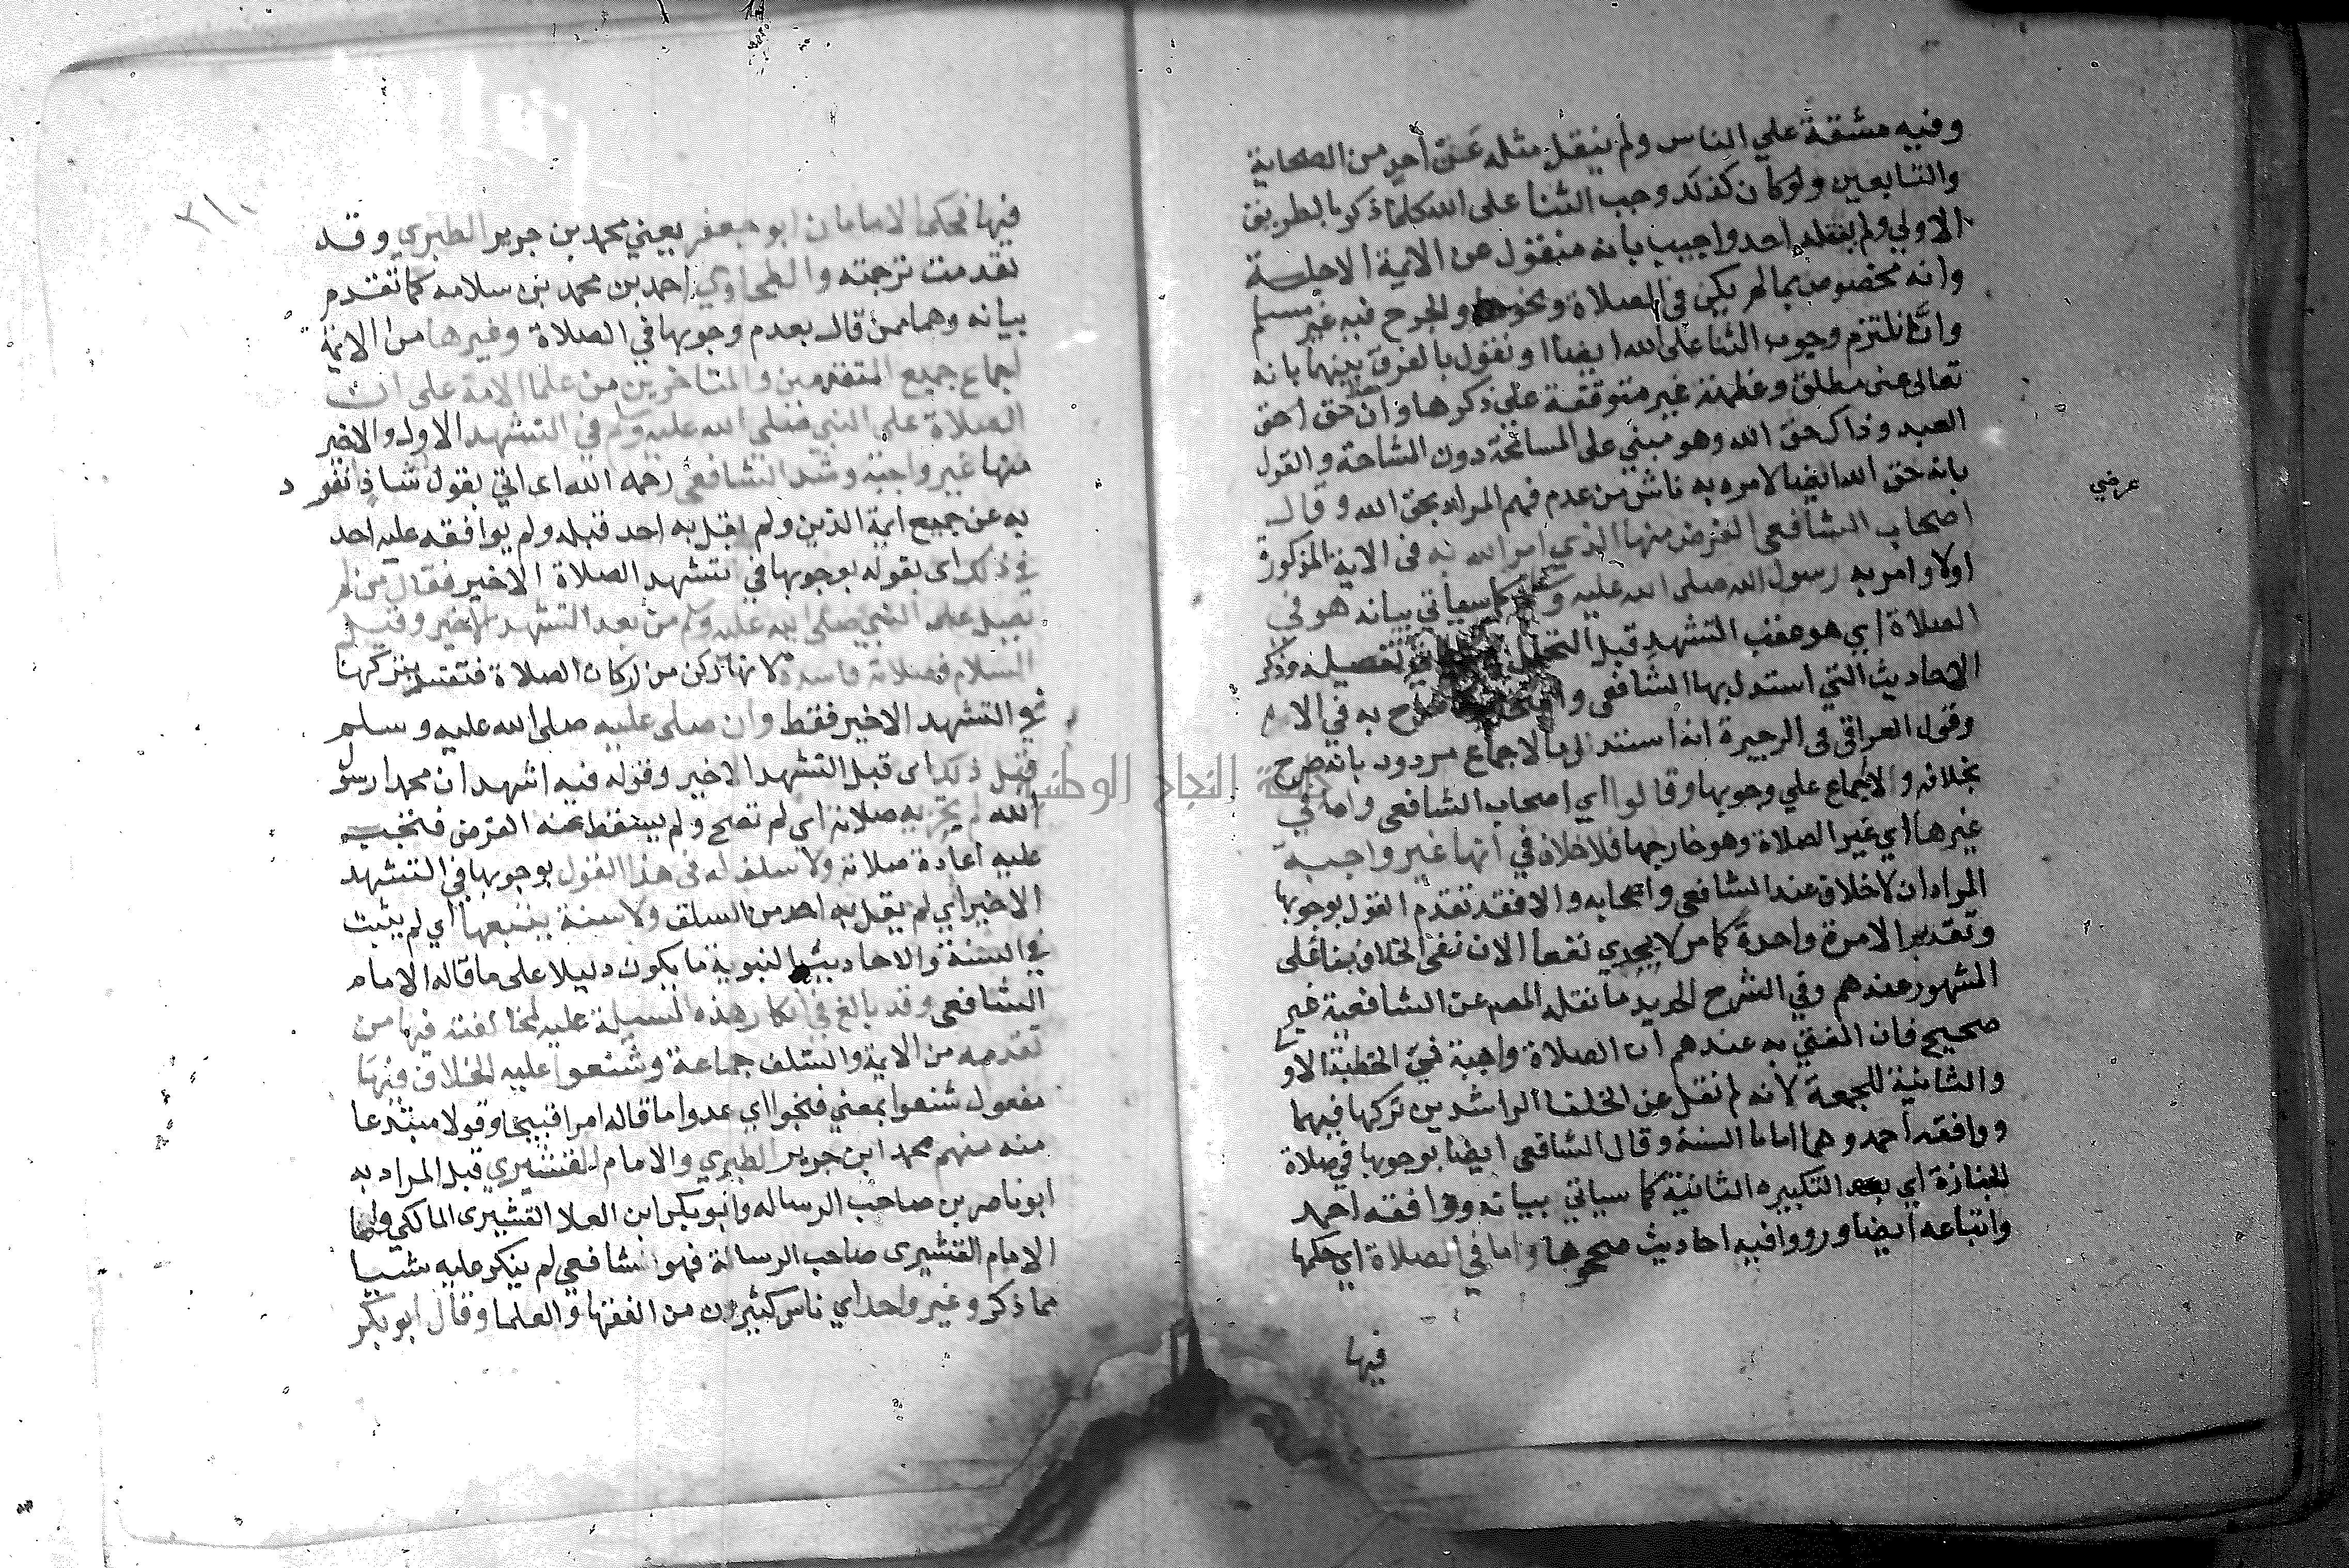 وفيه مشقة علي الناس ولم ينقل مثله عن احد من الصحابة
والتابعين ولو كان كذلك وجب الثنا على الله كلما ذكر بالطريق
الاولي ولم ينقله احد واجيب بانه منقول عن الايمة الاجلسة
وانه مخصوص بما لم يكن في الصلاة ونحوها والجرح فيه غير مسلم
وانا نلتزم وجوب الثنا على الله ايضا او نقول بالفرق بينهما بانه
تعالى غنى مطلق وعظمته غير متوقفة علي ذكرها وان حق احق
العبد وذاك حق الله وهو مبني على المسامحة دون المشاحة والقول
بانه حق الله ايضا لامره به ناش من عدم فهم المراد بحق الله وقال
عرضي
اصحاب الشافعي الفرض منها الذي امر الله به في الاية المذكورة
اولا وامر به رسول الله صلى الله عليه وسلم كما سياتي بيانه هو في
الصلاة اي هو عقب التشهد قبل التحلل تفصيله وذكر
الاحاديث التي استدل بها الشافعي صرح به في الام
وقول العراقي في انه استند الى الاجماع مردود بانه صرح
بخلافه والاجماع علي وجوبها وقالوا اي اصحاب الشافعي واما في
غيرها اي غير الصلاة وهو خارجها فلا خلاف في انها غير واجبة
المراد ان لا خلاف عند الشافعي واصحابه والا فقد تقدم القول بوجوبها
وتقدم الامرة واحدة كما مر لا يجدي نفعا الان نفي الخلاف بنا على
المشهور عندهم وفي الشرح الجديد ما نقله المص عن الشافعية غير
صحيح فان المفتي به عندهم ان الصلاة واجبة في الخطبة الاو
والثانية للجمعة لانه لم نقل عن الخلفا الراشدين تركها فيهما
ووافقه احمد وهما اماما السنة وقال الشافعي ايضا بوجوبها في صلاة
الجنازة اي بعد التكبيره الثانية كما سياتي بيانه ووافقه احمد
واتباعه ايضا ورووا فيه احاديث صححوها واما في الصلاة اي حكمها
فيها
فيها فحكى الامامان ابو جعفر يعني محمد بن جرير الطبري وقد
تقدمت ترجمته والطحاوي احمد بن محمد بن سلامه كما تقدم
بيانه وهما ممن قال بعدم وجوبها في الصلاة وغيرها من الايمة
اجماع جميع المتقدمين والمتاخرين من علما الامة على ان
الصلاة على النبي صلى الله عليه وسلم في التشهد الاول والاخير
منها غير واجبة وشد الشافعي رحمه الله اى اتي بقول شاذ انفرد
به عن جميع ايمة الدين ولم يقل به احد قبله ولم يوافقه عليه احد
في ذلك اى بقوله بوجوبها في تشهد الصلاة الاخير فقال من لم
يصل على النبي صلى الله عليه وسلم من بعد التشهد الاخير وقبل
السلام فصلاته فاسدة لانها ركن من اركان الصلاة فتفسد بتركها
في التشهد الاخير فقط وان صلى عليه صلى الله عليه وسلم
قبل ذلك اى قبل التشهد الاخير وقوله فيه اشهد ان محمدا رسول
الله لم يجزيه صلاته اى لم تصح ولم يسقط عنه الفرض فتجب
عليه اعادة صلاته ولا سلف له في هذا القول بوجوبها في التشهد
الاخير اي لم يقل به احد من السلف ولا سنة يتبعها اي لم يثبت
في السنة والاحاديث النبوية ما يكون دليلا على ما قاله الامام
الشافعي وقد بالغ في انكار هذه المسيلة عليه لمخالفته فيها من
تقدمه من الايمة والسلف جماعة وشنعوا عليه الخلاف فيها
مفعول شنعوا بمعني قبحوا اي عدوا ما قاله امرا قبيحا وقولا مبتدعا
منه منهم محمد ابن جرير الطبري والامام القشيري قيل المراد به
ابو ناصر بن صاحب الرساله وابو بكر ابن العلا القشيرى المالكي واما
الامام القشيرى صاحب الرسالة فهو شافعي لم ينكر عليه شيا
مما ذكر وغير واحد اي ناس كثيرون من الفقها والعلما وقال ابو بكر
جامعة النجاح الوطنية